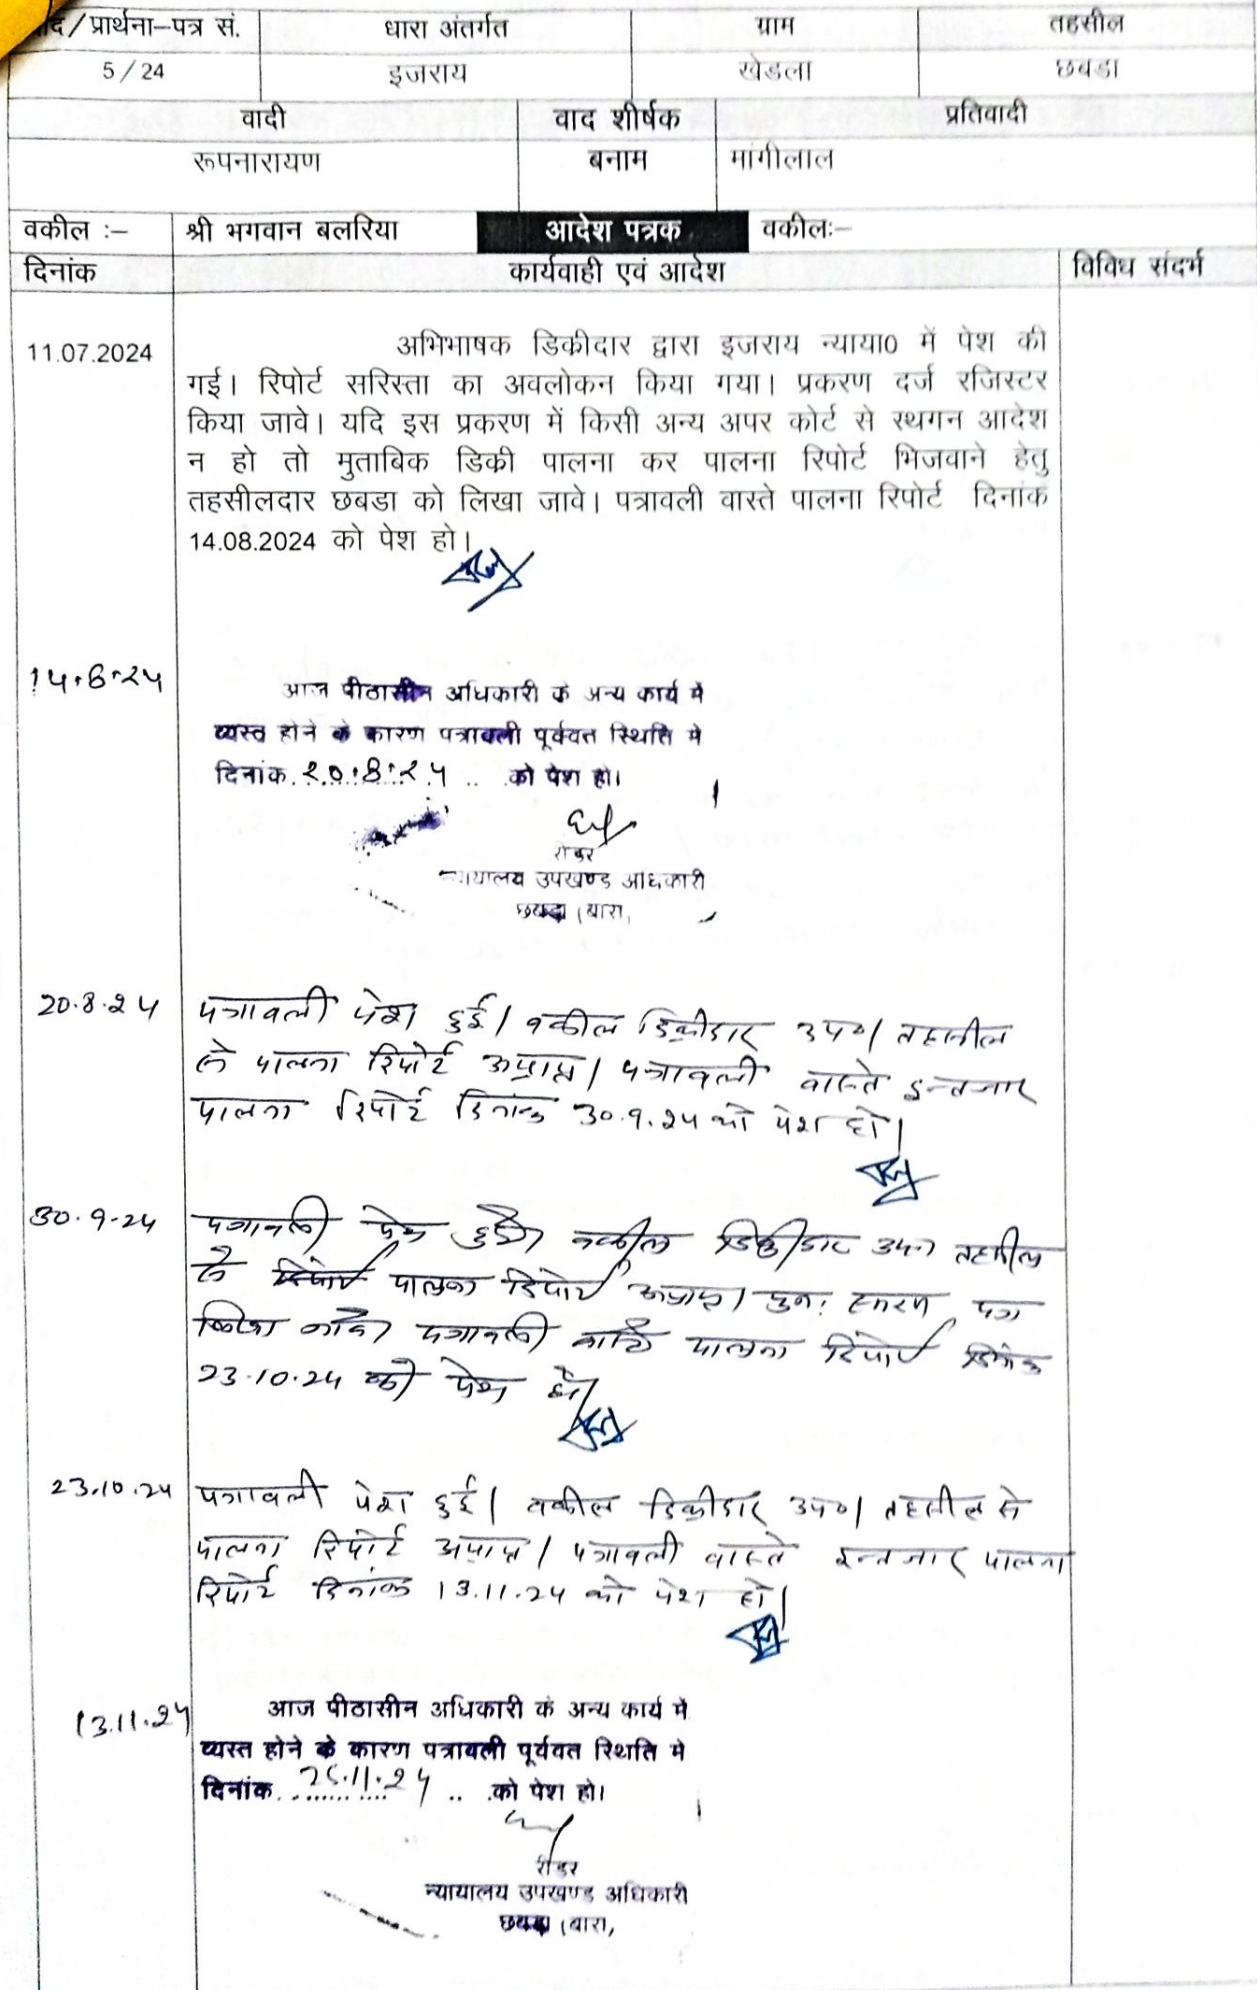 वाद / प्रार्थना–पत्र सं. धारा अंतर्गत ग्राम तहसील
5 / 24 इजराय खेडला छबडा
वादी वाद शीर्षक प्रतिवादी
रूपनारायण बनाम मांगीलाल
वकील :– श्री भगवान बलरिया आदेश पत्रक वकीलः–
दिनांक कार्यवाही एवं आदेश विविध संदर्भ
11.07.2024 अभिभाषक डिकीदार द्वारा इजराय न्याया0 में पेश की
गई। रिपोर्ट सरिस्ता का अवलोकन किया गया। प्रकरण दर्ज रजिस्टर
किया जावे। यदि इस प्रकरण में किसी अन्य अपर कोर्ट से स्थगन आदेश
न हो तो मुताबिक डिकी पालना कर पालना रिपोर्ट भिजवाने हेतु
तहसीलदार छबडा को लिखा जावे। पत्रावली वास्ते पालना रिपोर्ट दिनांक
14.08.2024 को पेश हो।
14.8.24 आज पीठासीन अधिकारी के अन्य कार्य मे
व्यस्त होने के कारण पत्रावली पूर्ववत स्थिति मे
दिनांक 20.8.24 को पेश हो।
रीडर
न्यायालय उपखण्ड अधिकारी
छबडा (बारा,
20.8.24 पत्रावली पेश हुई। वकील डिक्रीदार उप०। तहसील
से पालना रिपोर्ट अप्राप्त। पत्रावली वास्ते इन्तजार
पालना रिपोर्ट दिनांक 30.9.24 को पेश हो।
30.9.24 पत्रावली पेश हुई। वकील डिक्रीदार उप० तहसील
से रिपोर्ट पालना रिपोर्ट अप्राप्त। पुनः स्मरण पत्र
पत्रावली वास्ते पालना रिपोर्ट दिनांक
23.10.24 को पेश हो।
23.10.24 पत्रावली पेश हुई। वकील डिक्रीदार उप०। तहसील से
पालना रिपोर्ट अप्राप्त। पत्रावली वास्ते इन्तजार पालना
रिपोर्ट दिनांक 13.11.24 को पेश हो।
13.11.24 आज पीठासीन अधिकारी के अन्य कार्य मे
व्यस्त होने के कारण पत्रावली पूर्ववत स्थिति मे
दिनांक को पेश हो।
रीडर
न्यायालय उपखण्ड अधिकारी
छबडा (बारा,